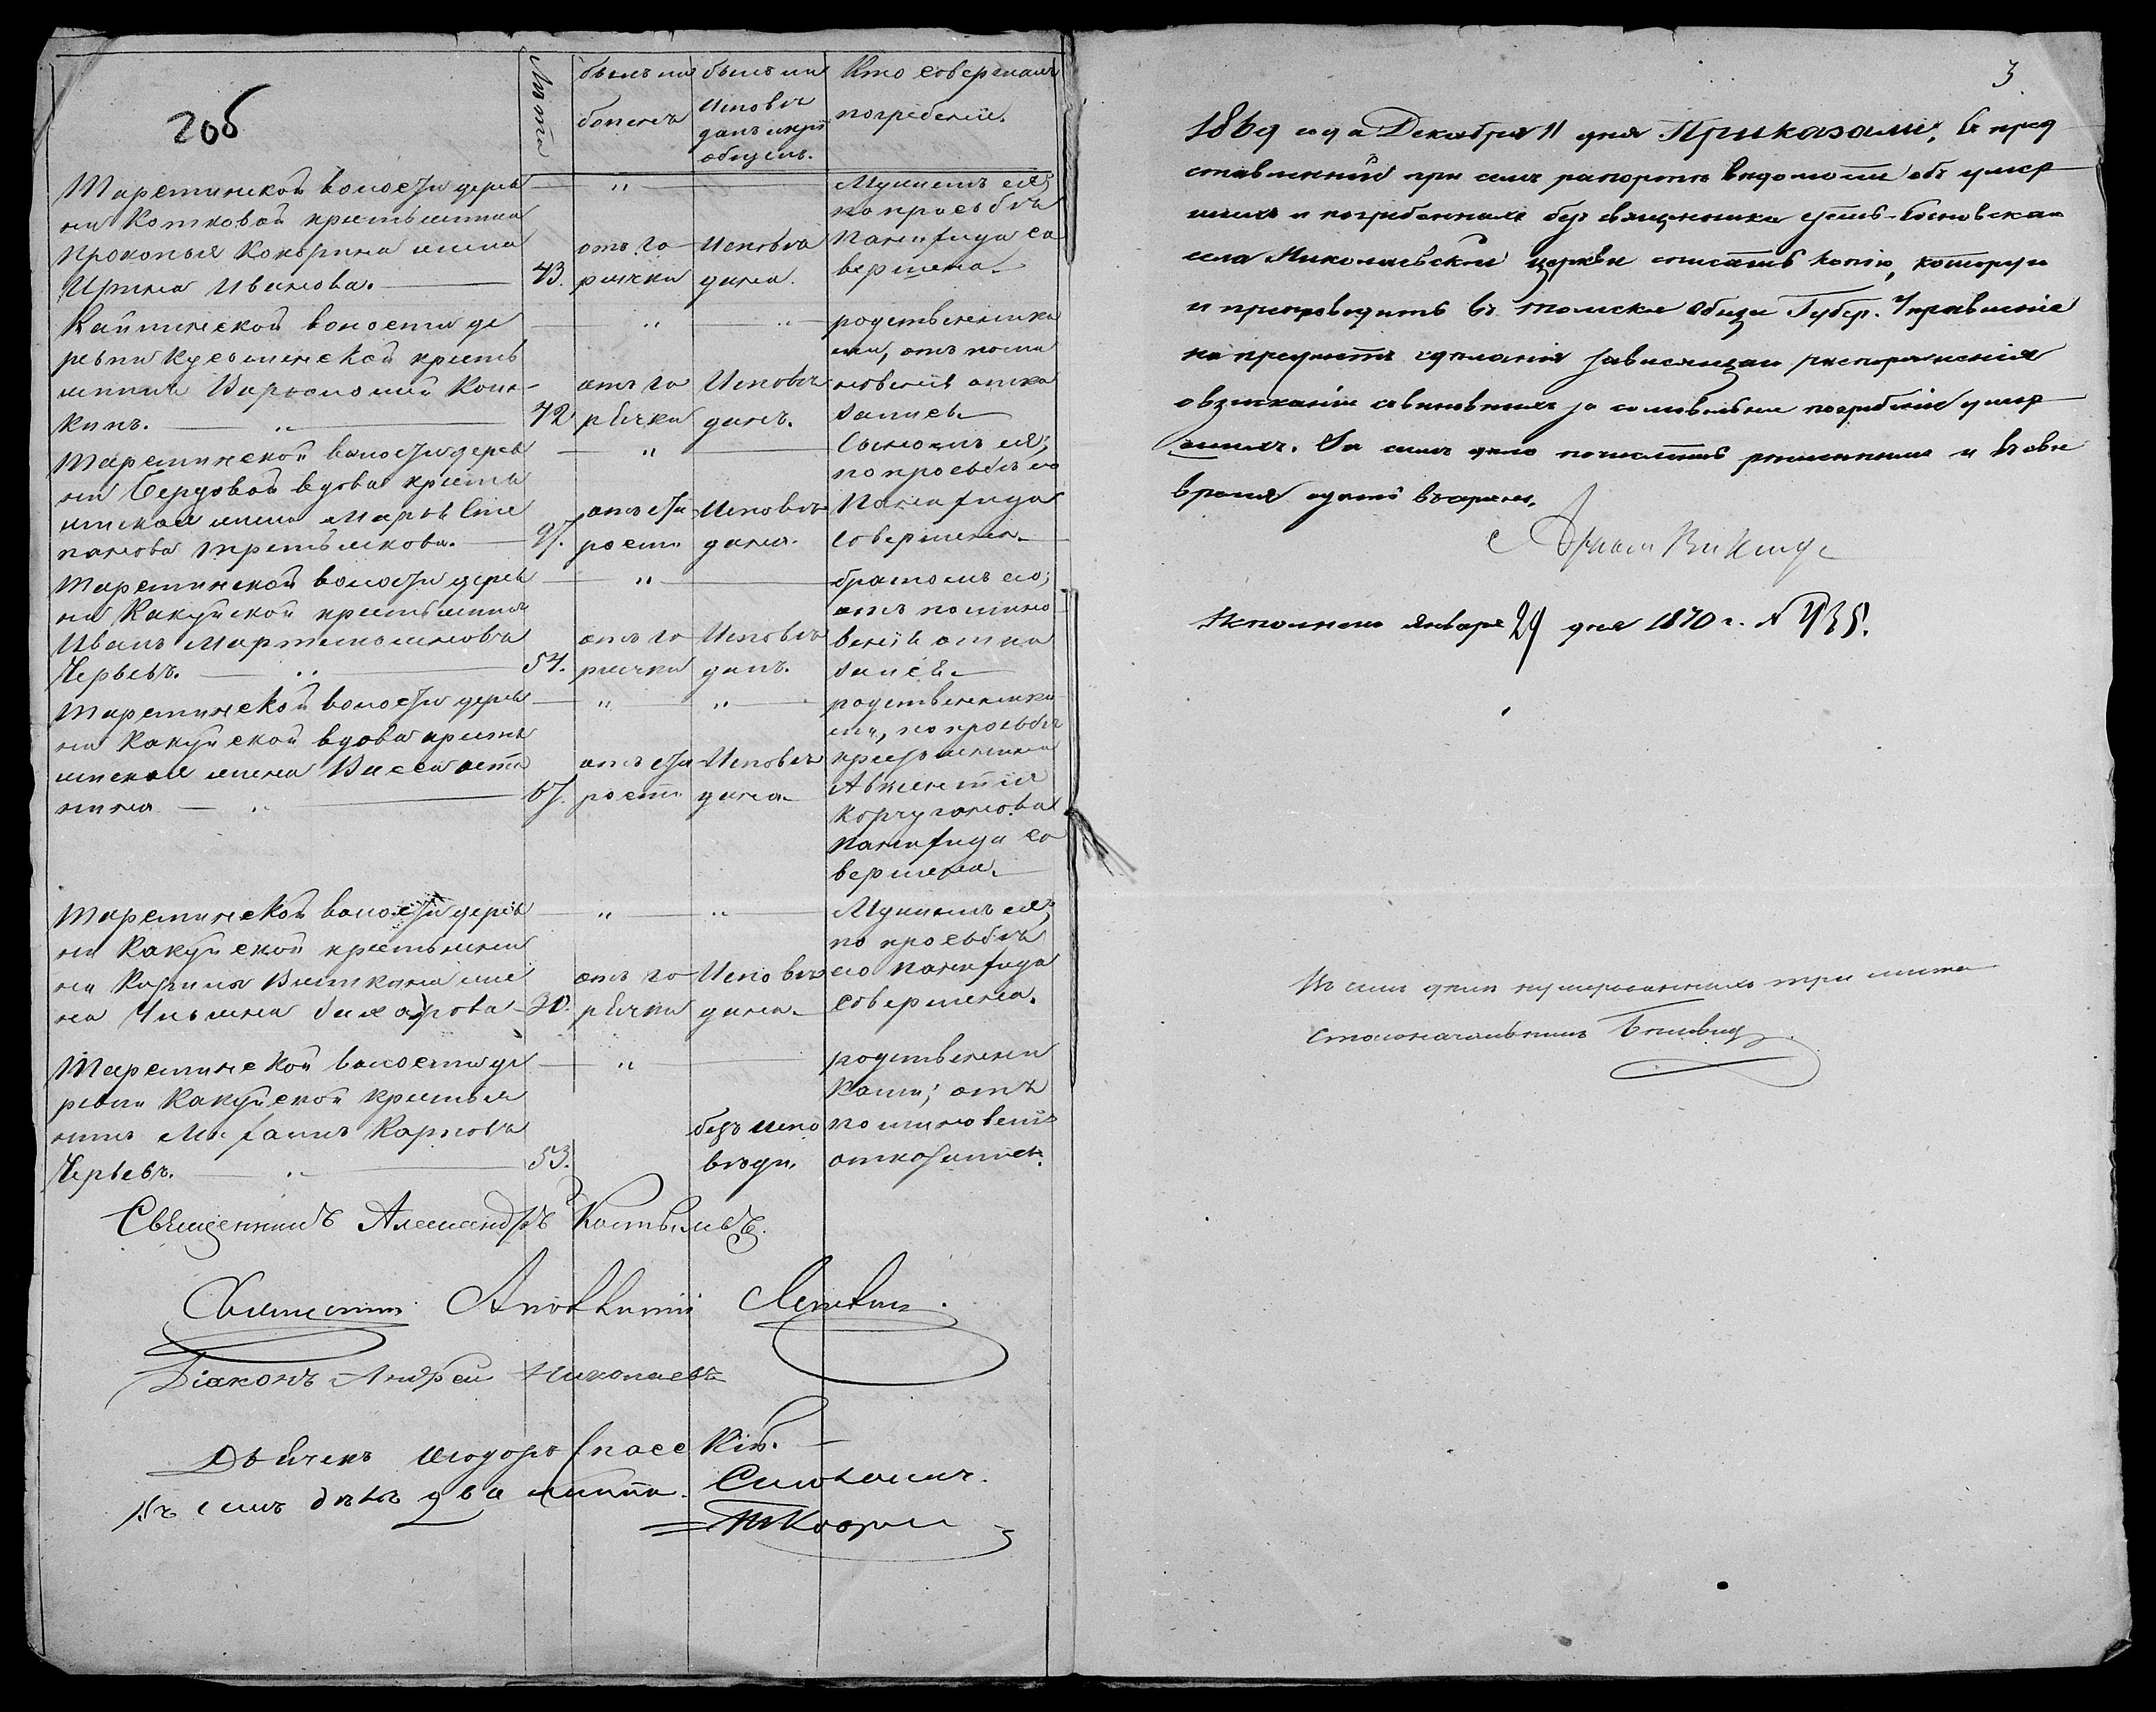 2об
Лѣта
былъ ли боленъ
былъ ли
Исповѣ
данъ и прі
общенъ.
Кто совершалъ
погребеніе.
Тарсминской волости дерев
ни Котковой крестьянина
Прокопья Кокорина жена
Ирина Иванова. 43. отъ го
рячки Исповѣ
дана. Мужемъ ея;
по просьбѣ
Панифида со
вершена.
Кайтинской волости де
ревни Кусьменской кресть
янинъ Варфоломей Коню
кинъ. 72. отъ го
рячки Исповѣ
данъ. родственника
ми, отъ поми
новенія отка
зались.
Тарсминской волости дерев
ни Бердовой вдова кресть
янская жена Марья Сте
панова Третьякова. 97. отъ ста
рости Исповѣ
дана. Сыномъ ея;
по просьбѣ его
Панифида
совершена.
Тарсминской волости дерев
ни Какуйской крестьянинъ
Иванъ Мартемьяновъ
Черьевъ. 54. отъ го
рячки Исповѣ
данъ. братомъ его;
отъ помино
венія отка
зался.
Тарсминской волости дерев
ни Какуйской вдова кресть
янская жена Васса
67. отъ ста
рости Исповѣ
дана. родственника
ми, по просьбѣ
крестьянина
Корчуганова
Панифида со
вершена.
Тарсминской волости дерев
ни Какуйской крестьяни
на жe
на Ульяна Захарова 30. отъ го
рячки Исповѣ
дана. Мужемъ ея;
по просьбѣ
его панифида
совершена.
Тарсминской волости де
ревни Какуйской крестья
нинъ Карповъ
Черьевъ. 53. безъ испо
вѣди. родственни
ками; отъ
поминовенія
отказались.
Священникъ Александръ
Священникъ
Діаконъ Андрей Николаевъ
Дьячекъ Ѳеодоръ Спасскій.
Въ семъ дѣлѣ два листа.
3
1869 года Декабря 11 дня Приказали: Съ пред
ставленной при семъ рапортѣ вѣдомости объ умер
шихъ и погребенныхъ безъ священника Усть-Сосновскаго
села Николаевской церкви списать копію, которую
и препроводить въ Томское Общее Губер. Управленіе
на предметъ сдѣланія зависящаго распоряженія
о взысканіи съ виновныхъ за самовольное погребеніе умер
шихъ. За симъ дѣло почислить рѣшеннымъ и въ свое
время сдать въ архивъ.
Исполнено Января 29 дня 1870 г. № 935.
Въ семъ дѣлѣ нумерованныхъ три листа
Столоначальникъ